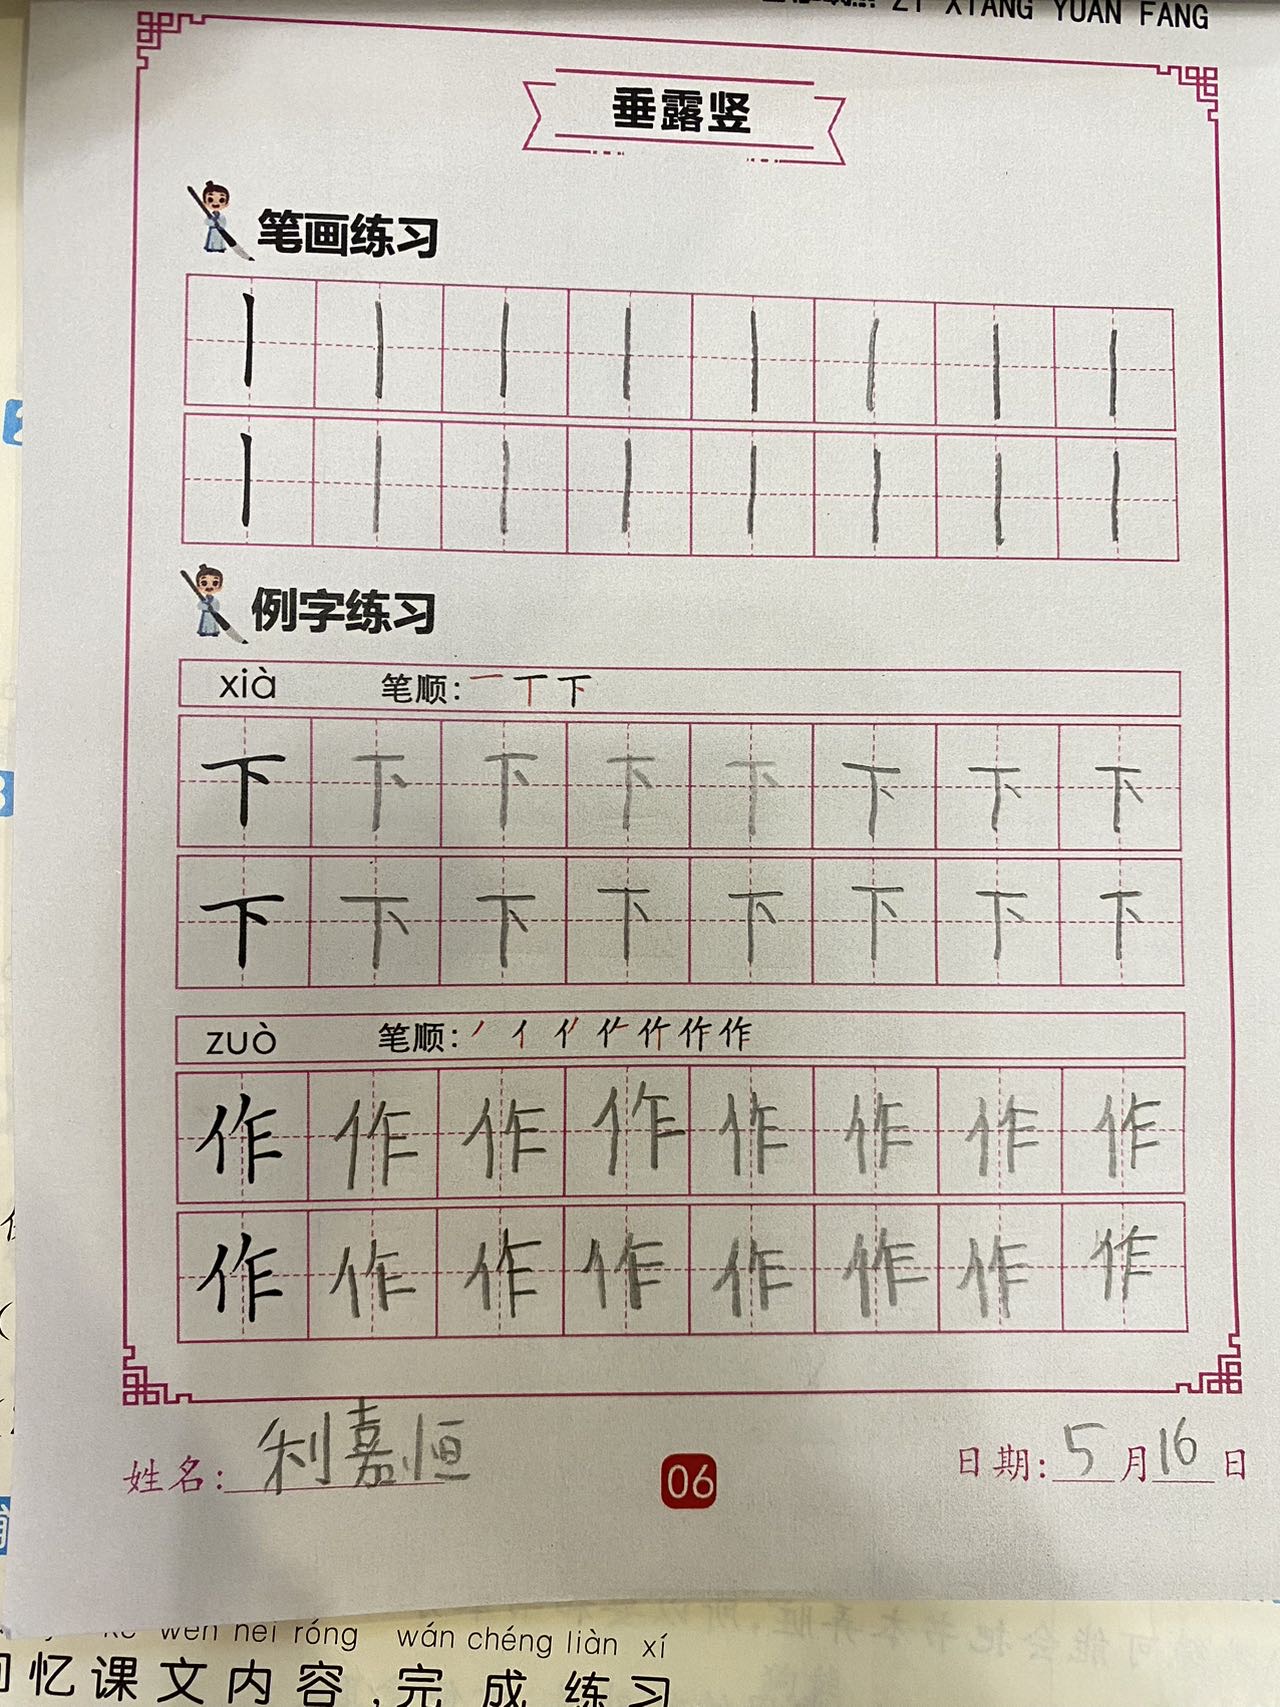 ZI XIANG YUAN FANG
垂露竖
笔画练习
例字练习
xià 笔顺:一丅下
下下下下下下下下
下下下下下下下下
zuò 笔顺:丿亻作作
作作作作作作作作
作作作作作作作作
姓名:利嘉恒 06 日期:5月16日
wèn nèi róng wán chéng liàn xí
忆课文内容,完成练习